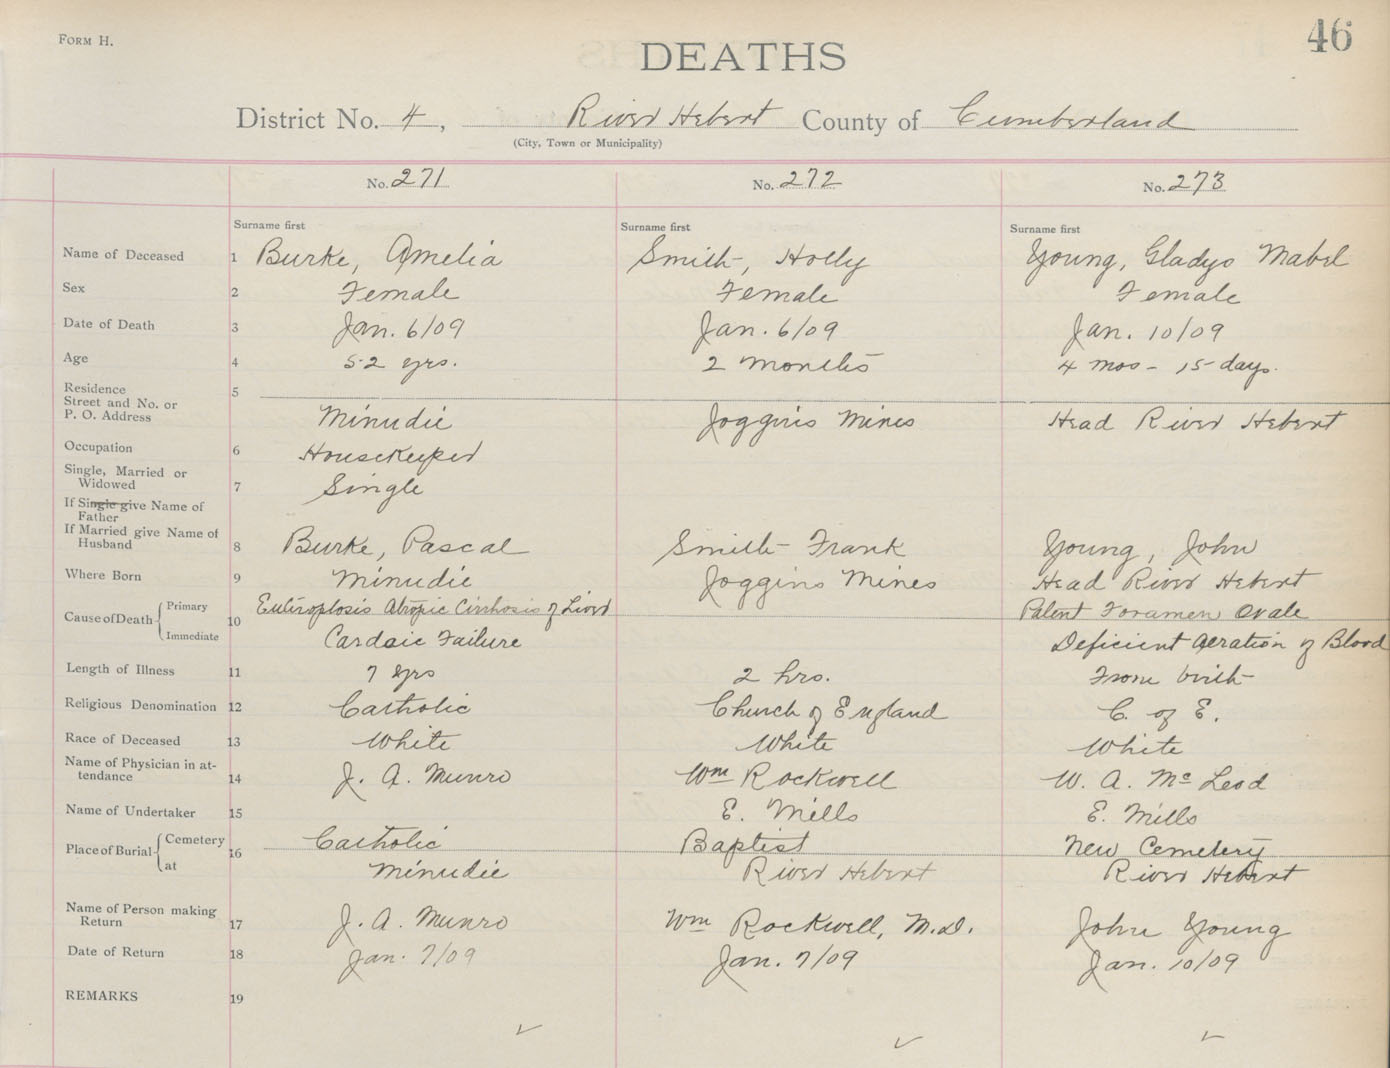 FORM H.
46
DEATHS
District No. 4, River Hebert County of Cumberland
(City, Town or Municipality)
No. 271 No. 272 No. 273
Surname first Surname first Surname first
Name of Deceased 1 Burke, Amelia Smith, Holly Young, Gladys Mabel
Sex 2 Female Female Female
Date of Death 3 Jan. 6/09 Jan. 6/09 Jan. 10/09
Age 4 52 yrs. 2 months 4 mos - 15 days.
Residence 5
Street and No. or
P. O. Address Minudie Joggins Mines Head River Hebert
Occupation 6 Housekeeper
Single, Married or
Widowed 7 Single
If Single give Name of
Father
If Married give Name of
Husband 8 Burke, Pascal Smith Frank Young, John
Where Born 9 Minudie Joggins Mines Head River Hebert
Cause of Death 10 Primary Atropic Cirrhosis of Liver Patent Foramen Ovale
Immediate Cardaic Failure Deficient Aeration of Blood
Length of Illness 11 7 yrs 2 hrs. From birth
Religious Denomination 12 Catholic Church of England C. of E.
Race of Deceased 13 White White White
Name of Physician in at-
tendance 14 J. A. Munro Wm Rockwell W. A. McLeod
Name of Undertaker 15 E. Mills E. Mills
Place of Burial 16 Cemetery Catholic Baptist New Cemetery
at Minudie River Hebert River Hebert
Name of Person making
Return 17 J. A. Munro Wm Rockwell, M.D. John Young
Date of Return 18 Jan. 7/09 Jan. 7/09 Jan. 10/09
REMARKS 19